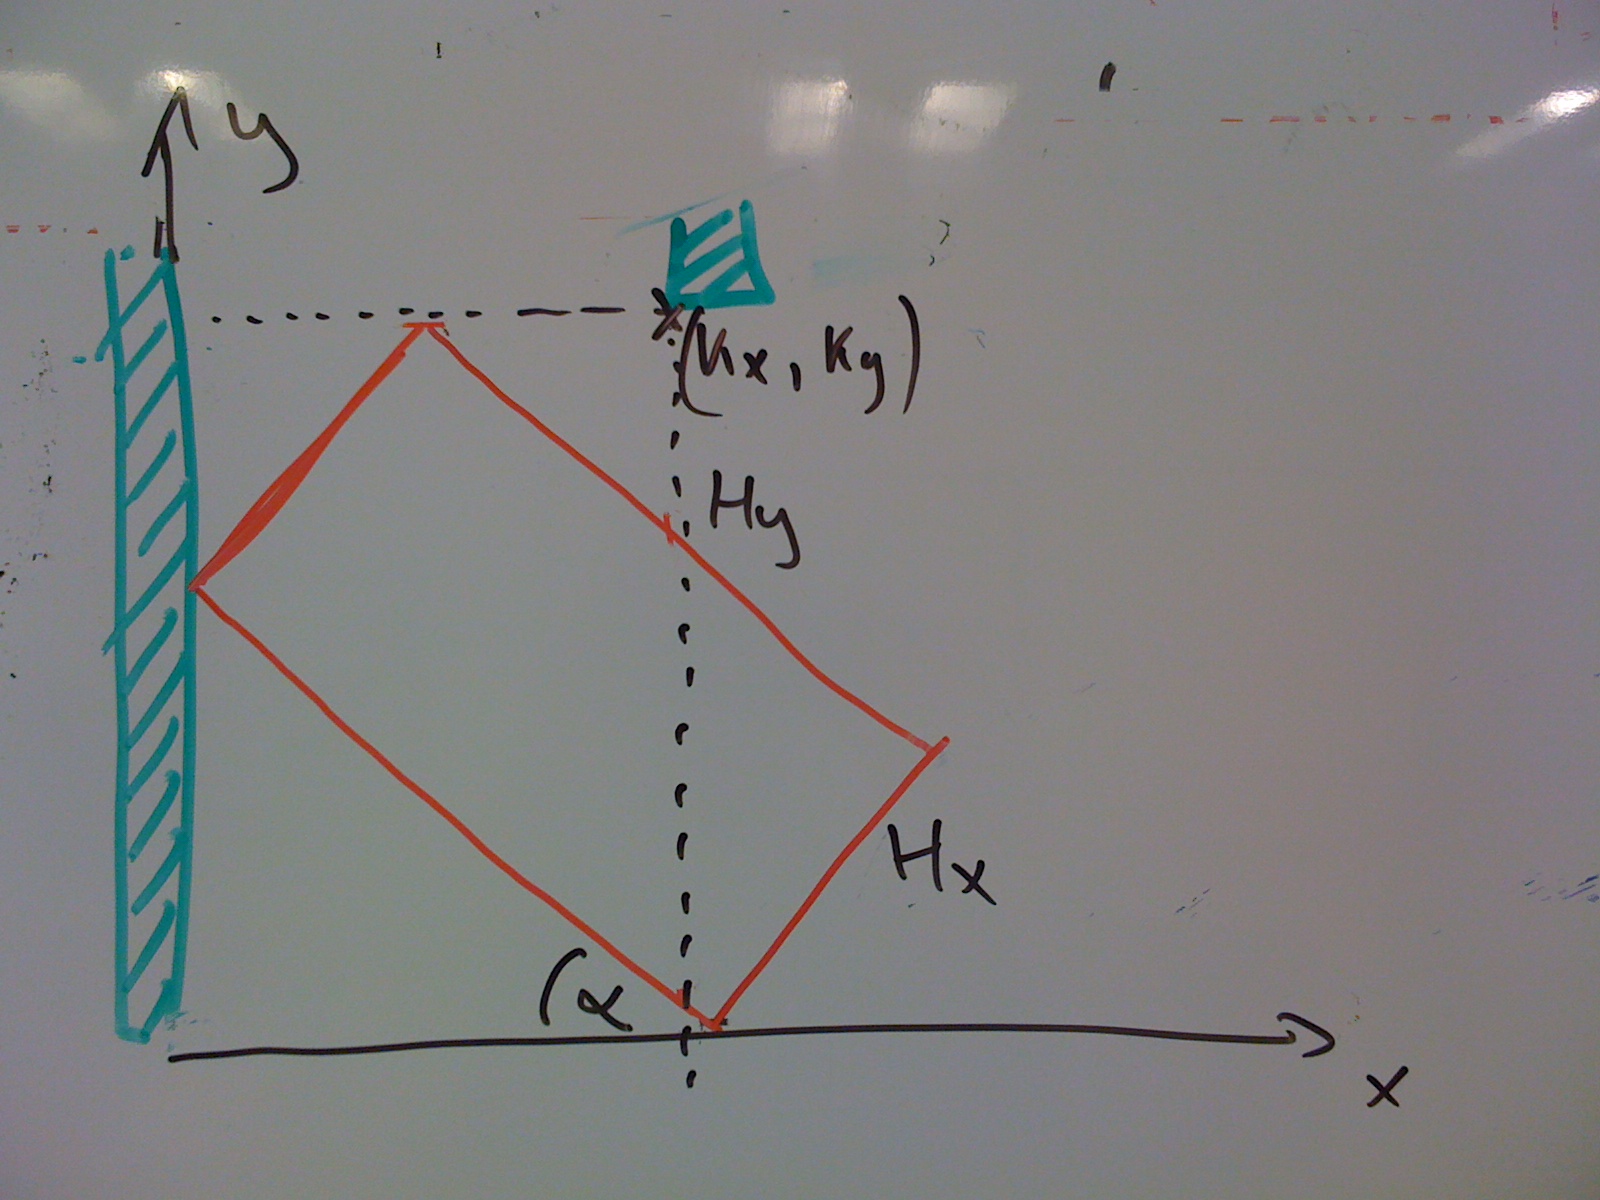 y
(Kx, Ky)
Hy
Hx
(α
x